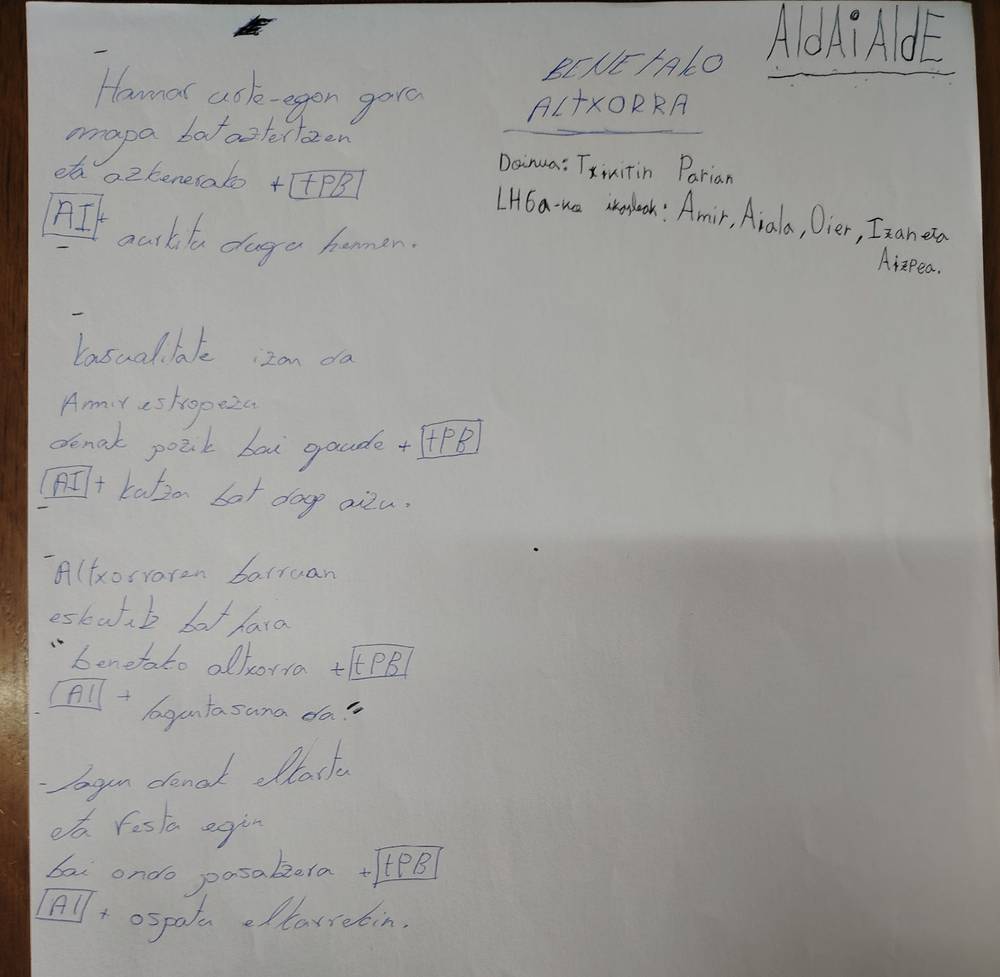 AldAiAldE
BENEtAkO
ALtXORRA
Doinua: Txikitin Parian
LH6a-ko ikasleak: Amir, Aiala, Oier, Izan eta
Aizpea.
- Hamar urte-egon gara
mapa bat aztertzen
eta azkenerako + tPB
AI +
- aurkitu dugu hemen.
- kasualitate izan da
Amir estropezu
denak pozik bai gaude + tPB
AI + kutxa bat dago aizu.
- Altxorraren barruan
eskutitz bat hara
"benetako altxorra + tPB
AI + laguntasuna da."
- lagun denak elkartu
eta festa egin
bai ondo pasatzera + tPB
AI + ospatu elkarrekin.